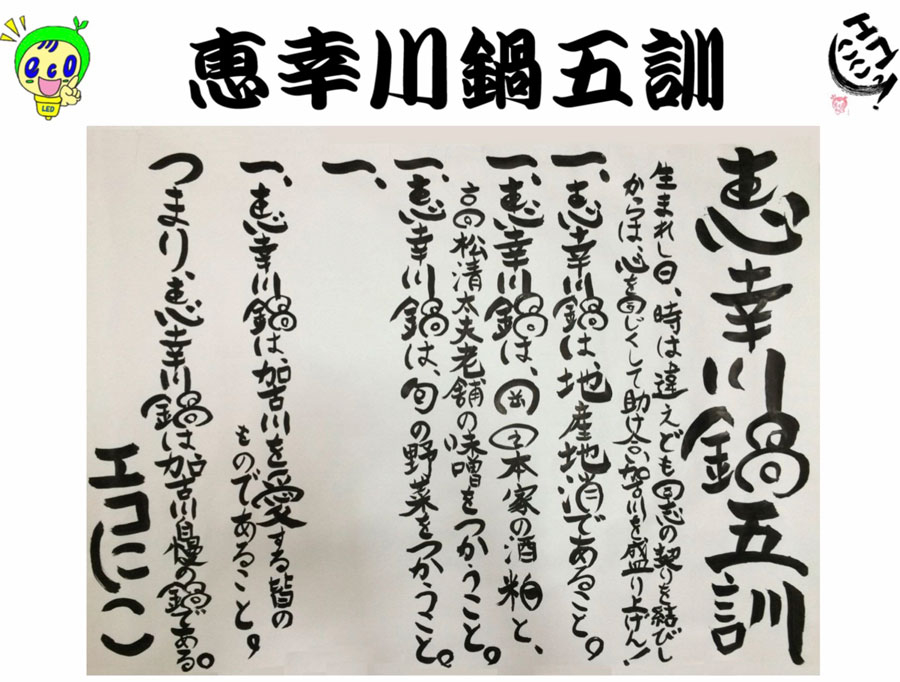 恵幸川鍋五訓
eco
LED
エコにこ!
恵幸川鍋五訓
生まれし日、時は違えども同志の契りを結びし
からは、心を同じくして助け合い加古川を盛り上げん!
一、恵幸川鍋は、地産地消であること。
一、恵幸川鍋は、岡田本家の酒粕と、
高松清太夫老舗の味噌をつかうこと。
一、恵幸川鍋は、旬の野菜をつかうこと。
一、
一、恵幸川鍋は加古川を愛する皆の
ものであること。
つまり、恵幸川鍋は加古川自慢の鍋である。
エコにこ